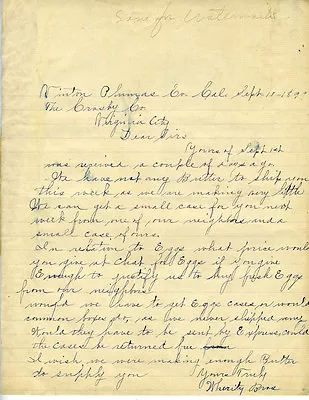 Save for Watermarks
Vinton Plumas Co. Cal. Sept. 18
The Crosby Co.
Virginia City
Dear Sirs
Yours of Sept. 1st
was received a couple of days ago.
We have not any Butter to ship you
this week as we are making very little
We can get a small case for you next
week from one of our neighbors and a
small case of ours.
In relation to Eggs what price would
you give at that for Eggs if you give
Enough to justify us to buy fresh Eggs
from our neighbors
would we have to get Eggs cases or would
common boxes do, as we never shipped any
Would they have to be sent by Express, could
the cases be returned free
I wish we were making enough Butter
to supply you
Yours Truly
Wherity Bros